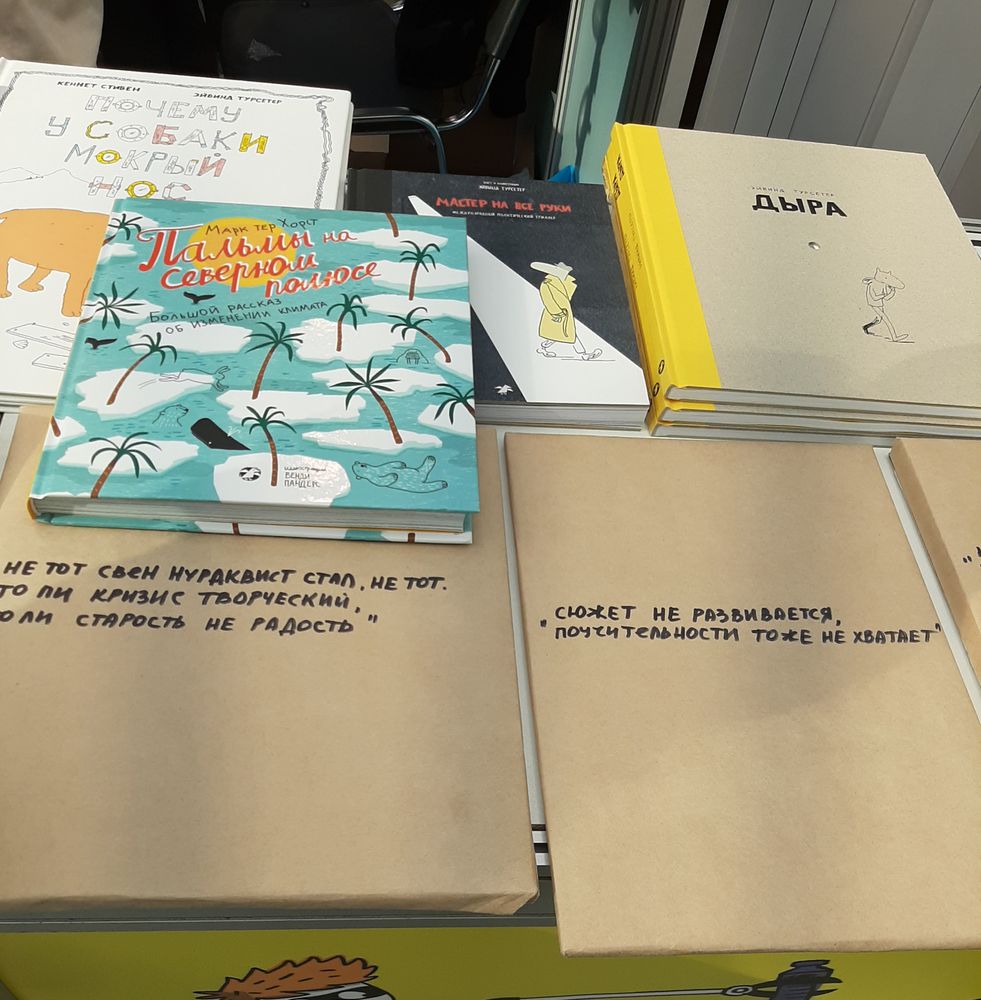 КЕННЕТ СТИВЕН
ЭЙВИНД ТУРСЕТЕР
ПОЧЕМУ
У СОБАКИ
МОКРЫЙ
НОС
МАРК ТЕР ХОРСТ
ПАЛЬМЫ НА
СЕВЕРНОМ
ПОЛЮСЕ
БОЛЬШОЙ РАССКАЗ
ОБ ИЗМЕНЕНИИ КЛИМАТА
ИЛЛЮСТРАЦИИ
ВЕНДИ
ПАНДЕРС
ЭЙВИНД ТУРСЕТЕР
МАСТЕР НА ВСЕ РУКИ
МЕЖДУНАРОДНЫЙ ПОЛИТИЧЕСКИЙ ТРИЛЛЕР
ЭЙВИНД ТУРСЕТЕР
ДЫРА
НЕ ТОТ СВЕН НУРДКВИСТ СТАЛ, НЕ ТОТ.
ТО ЛИ КРИЗИС ТВОРЧЕСКИЙ,
ТО ЛИ СТАРОСТЬ НЕ РАДОСТЬ"
„СЮЖЕТ НЕ РАЗВИВАЕТСЯ,
ПОУЧИТЕЛЬНОСТИ ТОЖЕ НЕ ХВАТАЕТ"